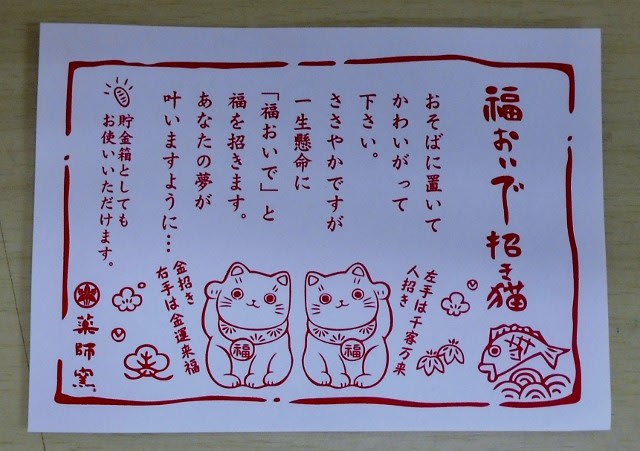 福おいで招き猫
おそばに置いて
かわいがって
下さい。
ささやかですが
一生懸命に
「福おいで」と
福を招きます。
あなたの夢が
叶いますように…
貯金箱としても
お使いいただけます。
左手は千客万来
人招き
金招き
右手は金運来福
福
福
薬師窯